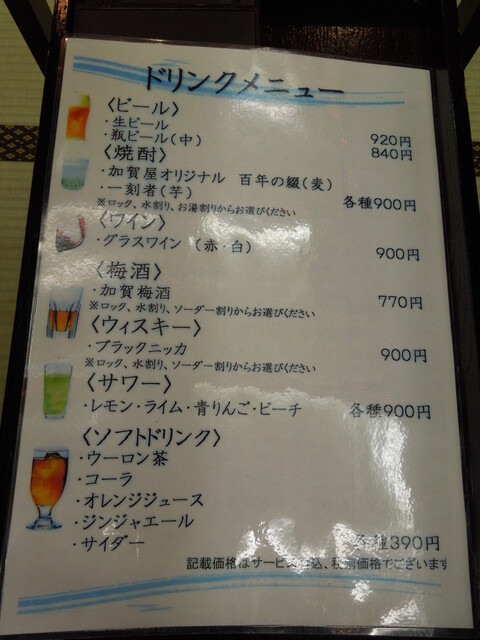 ドリンクメニュー
〈ビール〉
・生ビール 920円
・瓶ビール(中) 840円
〈焼酎〉
・加賀屋オリジナル 百年の綴(麦)
・一刻者(芋) 各種900円
※ロック、水割り、お湯割りからお選びください
〈ワイン〉
・グラスワイン (赤・白) 900円
〈梅酒〉
・加賀梅酒 770円
※ロック、水割り、ソーダー割りからお選びください
〈ウィスキー〉
・ブラックニッカ 900円
※ロック、水割り、ソーダー割りからお選びください
〈サワー〉
・レモン・ライム・青りんご・ピーチ 各種900円
〈ソフトドリンク〉
・ウーロン茶
・コーラ
・オレンジジュース
・ジンジャエール
・サイダー 各種390円
記載価格はサービス込、税別価格でございます